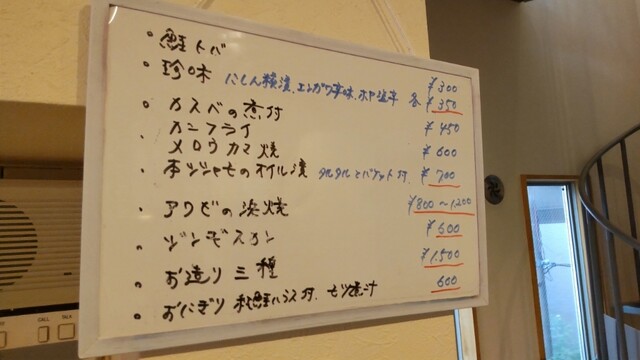 ・鮭トバ ¥300
・珍味 にしん糠漬、エンガワ 味、ホヤ塩辛 各 ¥350
・カスベの煮付 ¥450
・カニフライ
メロウカマ焼 ¥600
・本シシャモのオイル漬 タルタルとバゲット付 ¥700
・アワビの浜焼 ¥800～1,200
・ ¥500
・お造り三種 ¥1,500
・おにぎり 秋鮭ハラス付、 汁 600
CALL TALK